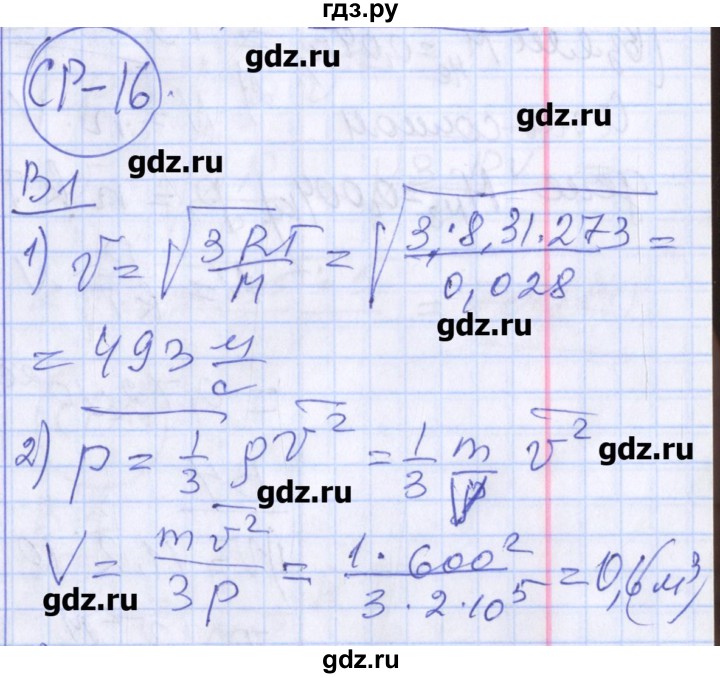 гдз.ру
СР-16.
gdz.ru
gdz.ru
gdz.ru
В1
1) v = √(3RT/M) = √(3·8,31·273/0,028) =
gdz.ru
= 493 м/с
2) p = 1/3 ρv̅² = 1/3 m/V v̅²
gdz.ru
gdz.ru
V = mv̅²/3p = 1·600²/3·2·10⁵ = 0,6(м³)
gdz.ru
gdz.ru